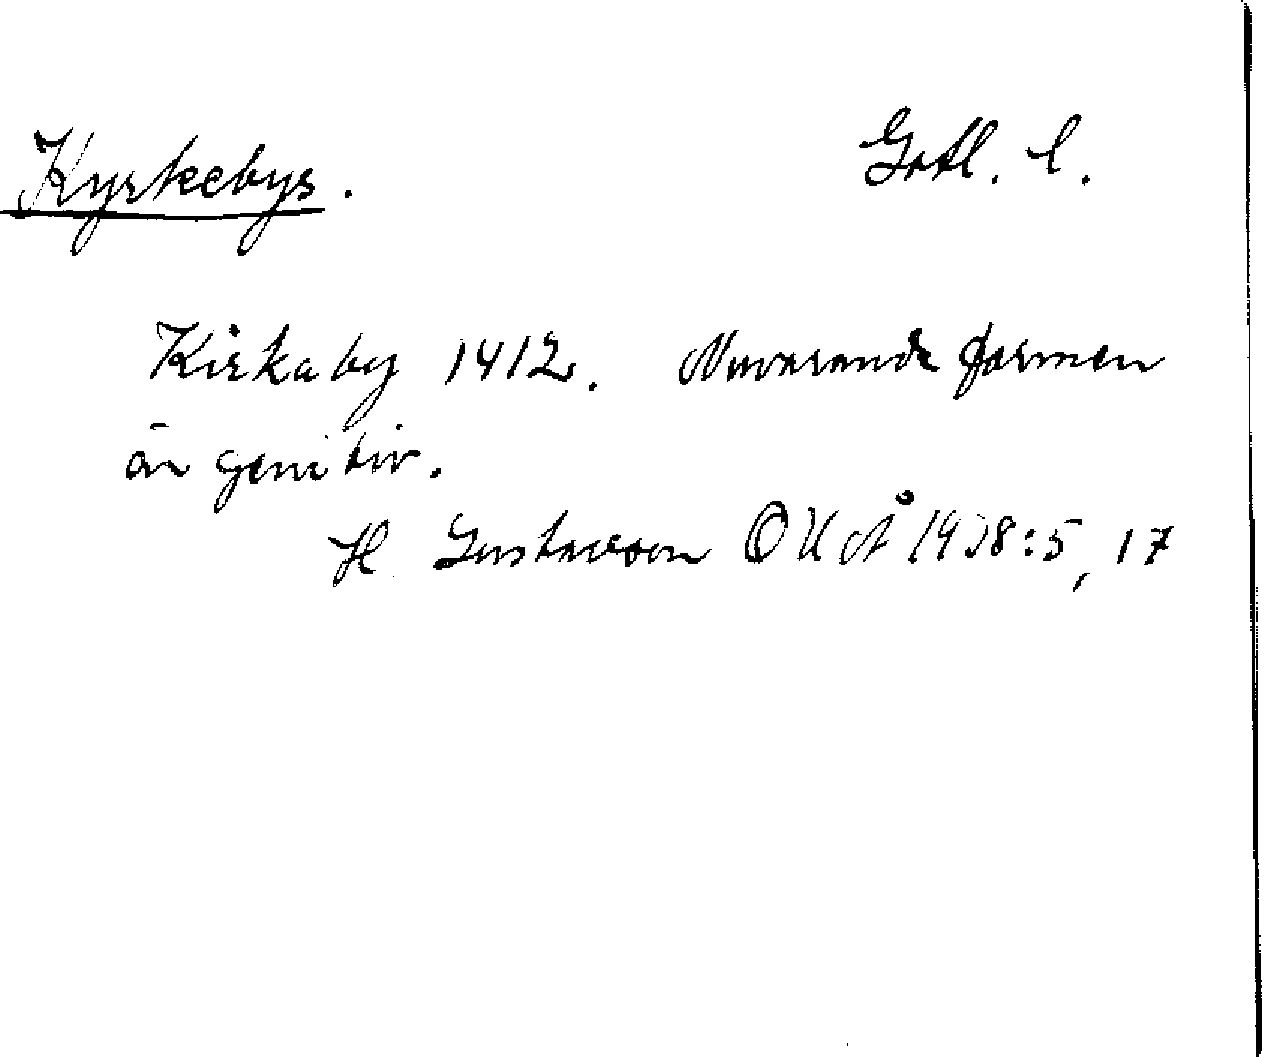 Kyrkebys. Gotl. l.
Kirkaby 1412. Nuvarande formen
är genitiv.
H Gustavson OUÅ 1938:5, 17